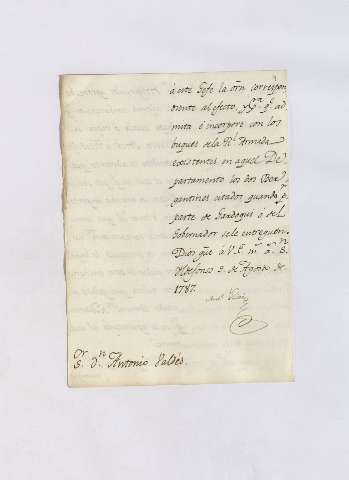 á este Gefe la orn correspon
diente al efecto, y pª qᵉ ad
mita é incorpore con los
buques de la Rl Armada
existentes en aquel De
partamento los dos Ber
gantines citados, quando pʳ
parte de Gardoqui ó del
Gobernador se le entreguen.
Dios gue á V.E. mˢ aˢ Sⁿ
Ildefonso 3. de Agosto de
1787.
Sᵒʳ Dⁿ Antonio Valdés.